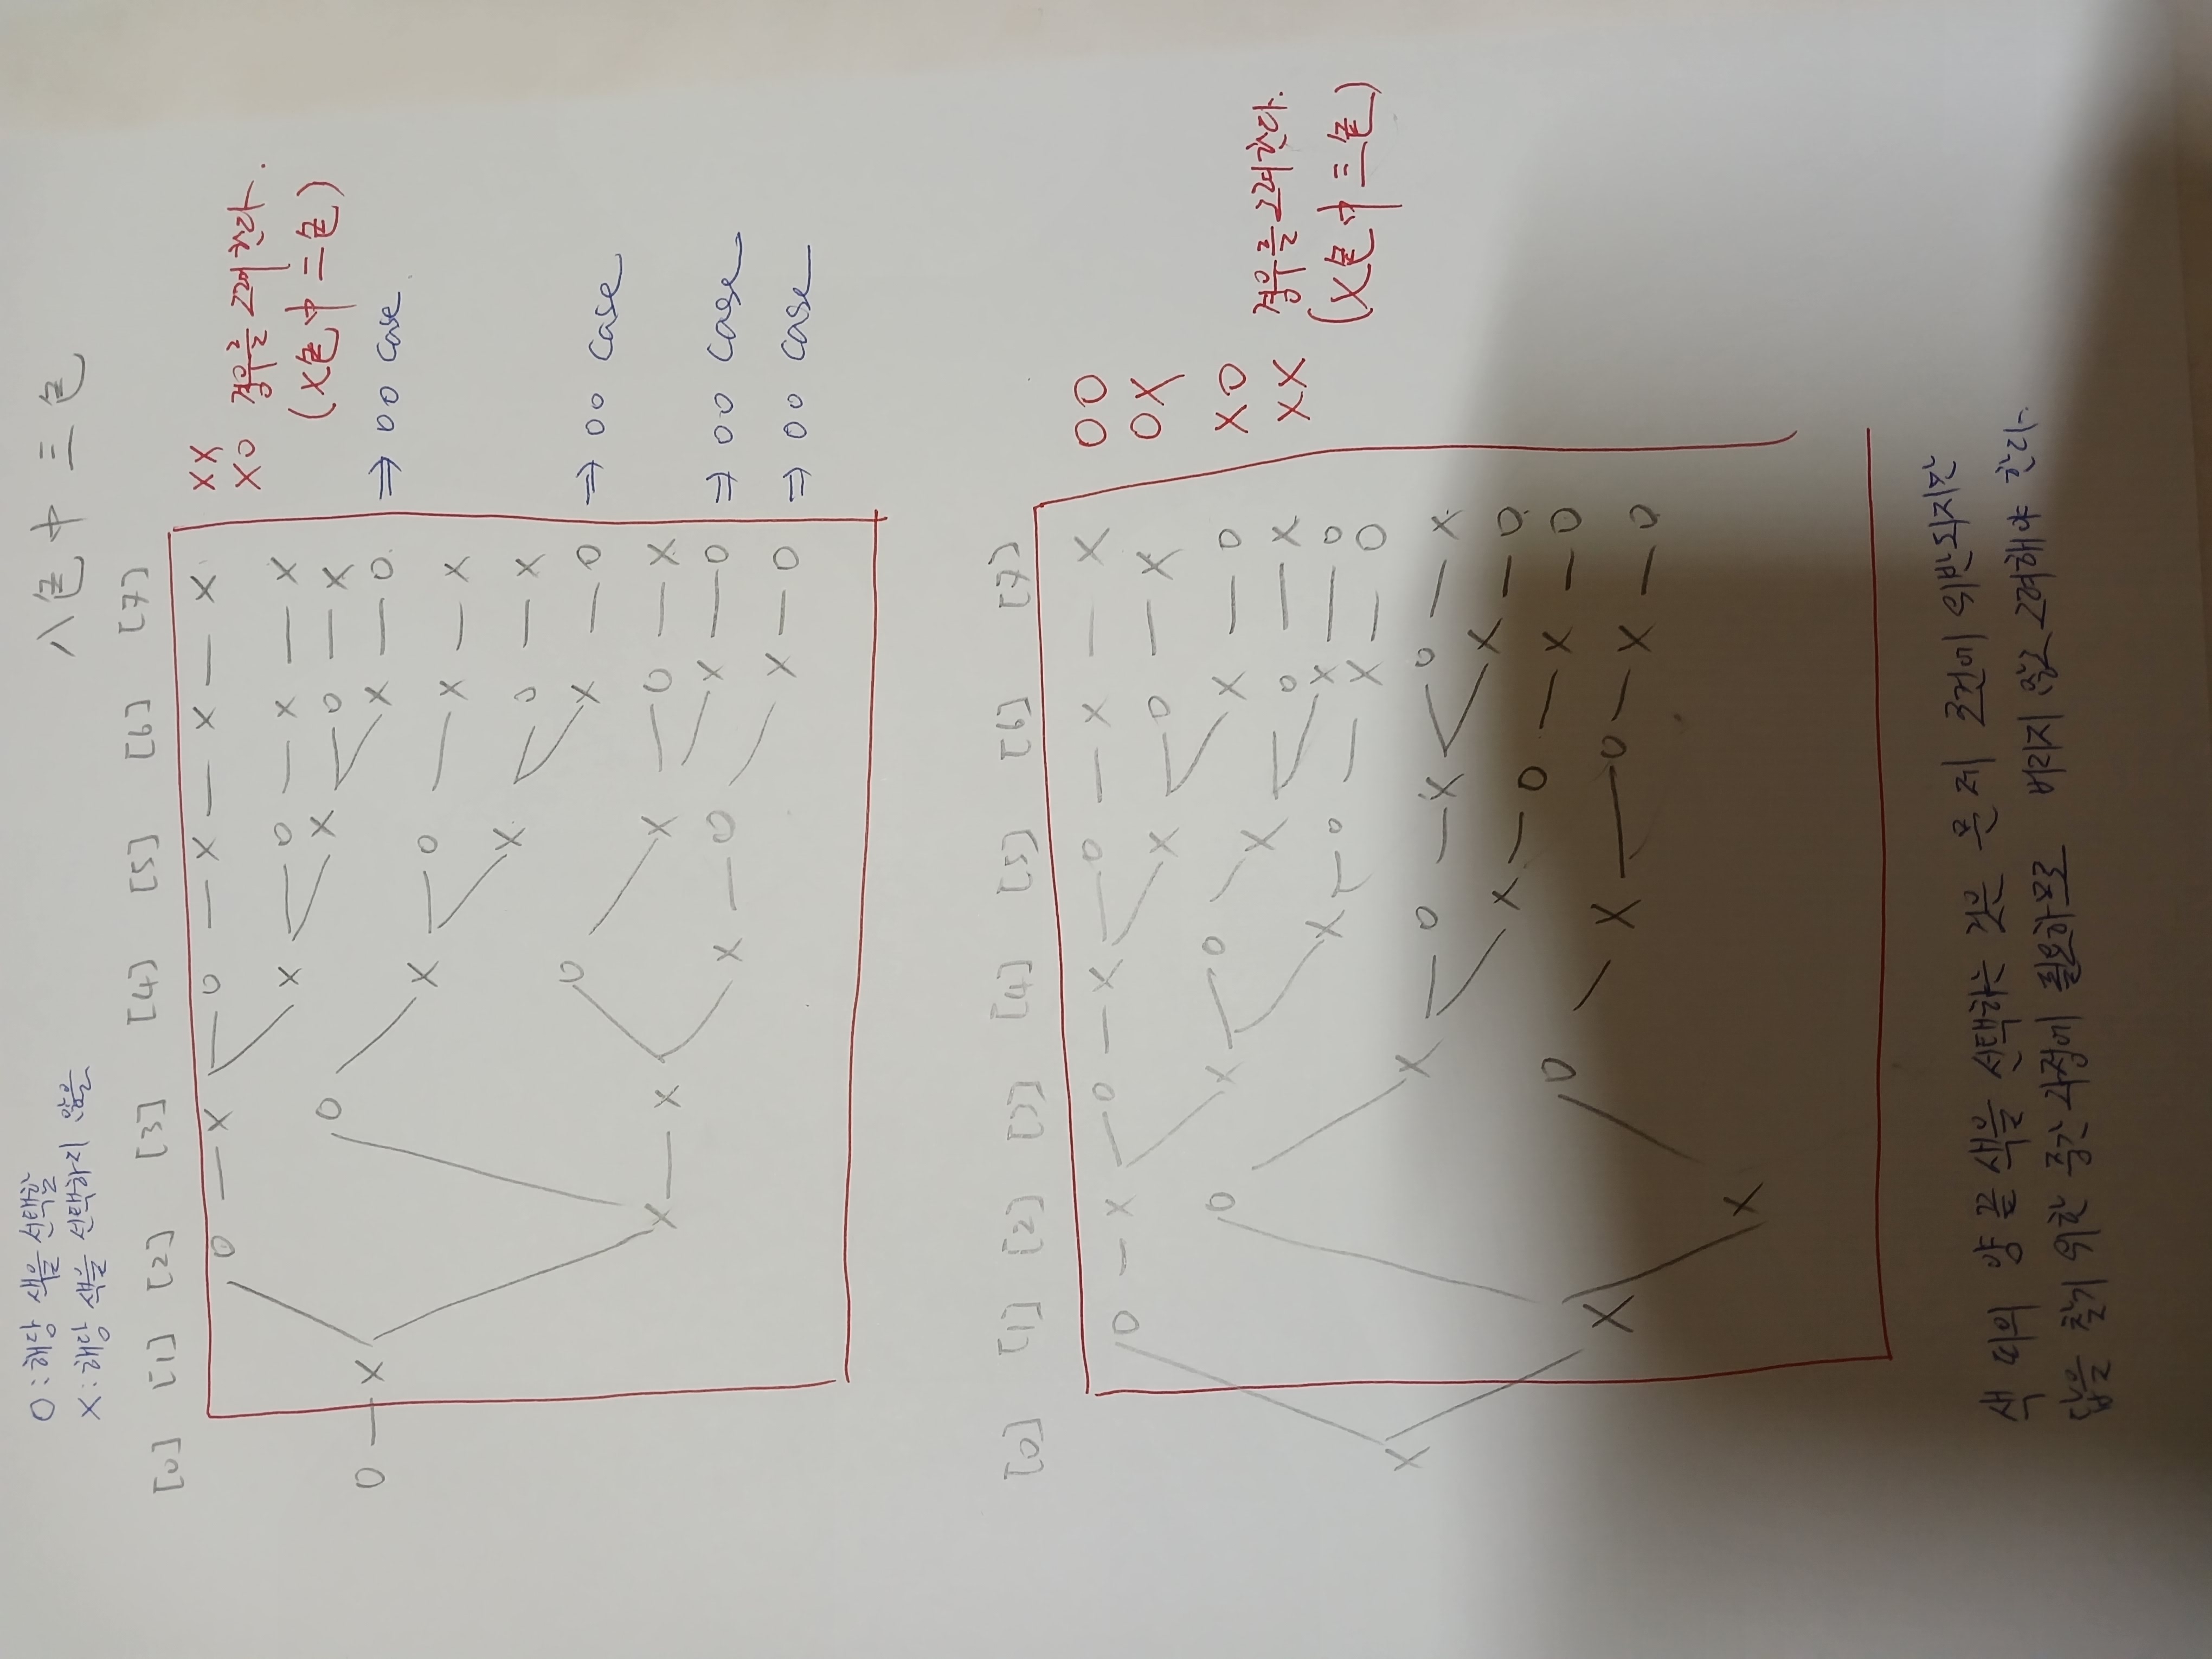 O : 해당 색을 선택함
X : 해당 색을 선택하지 않음
八色中三色
[0] [1] [2] [3] [4] [5] [6] [7]
O — X — O — X — O — X — X — X
X — O — X — X
X — O — X
X — O ⇒ OO case
O — X — O — X — X
X — O — X
X — O ⇒ OO case
X — X — O — X — O — X
X — O ⇒ OO case
X — O — X — O ⇒ OO case
XX
XO 경우를 고려한다.
(X色中二色)
[0] [1] [2] [3] [4] [5] [6] [7]
X — O — X — O — X — O — X — X
X — O — X
X — O
X — O — X — O — X
X — O
X — O — X — O
X — O — X — O — X — O — X
X — O
X — O — X — O
X — O — X — O — X — O
OO
OX
XO
XX 경우를 고려한다.
(X色中三色)
색 띠의 양 끝 색을 선택하는 것은 문제 조건에 위반되지만
답을 찾기 위한 중간 과정에 필요하므로 버리지 않고 고려해야 한다.